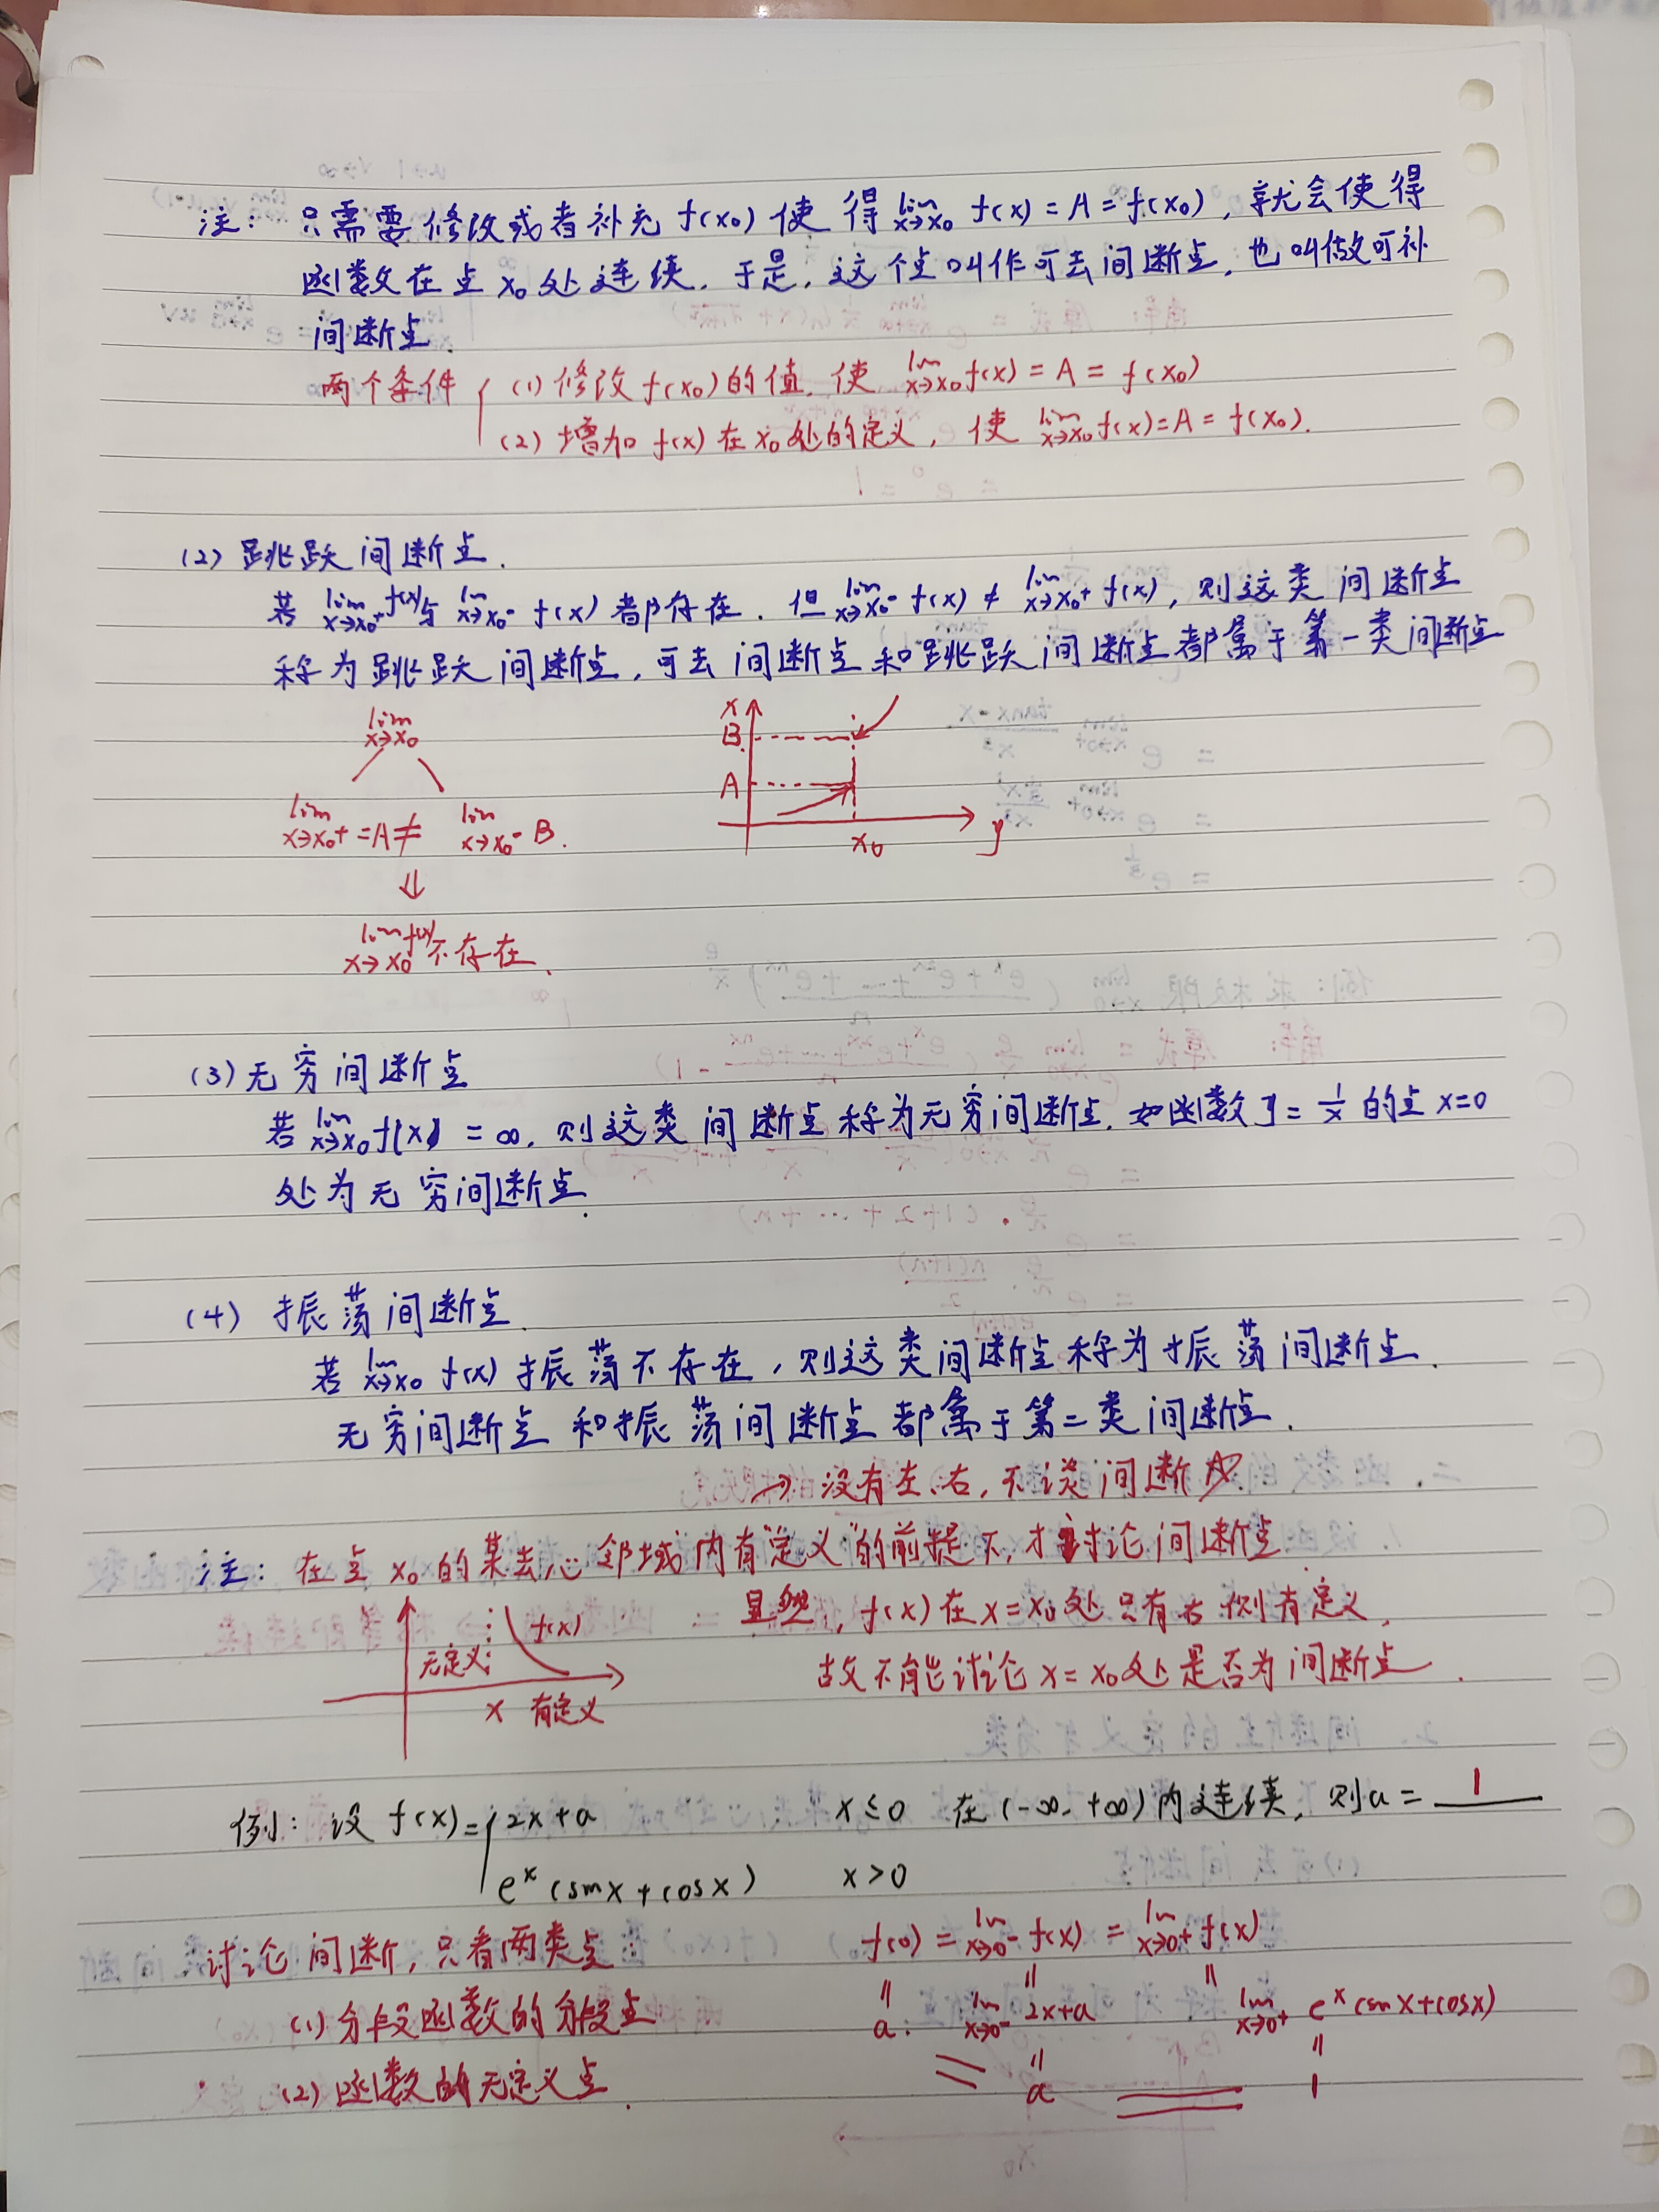 注: 只需要修改或者补充 f(x₀) 使得 lim x→x₀ f(x) = A = f(x₀), 就会使得
函数在点 x₀ 处连续. 于是, 这个点叫作可去间断点, 也叫做可补
间断点.
两个条件 { (1) 修改 f(x₀) 的值, 使 lim x→x₀ f(x) = A = f(x₀)
(2) 增加 f(x) 在 x₀ 处的定义, 使 lim x→x₀ f(x) = A = f(x₀).
(2) 跳跃间断点.
若 lim x→x₀⁺ f(x) 与 lim x→x₀⁻ f(x) 都存在. 但 lim x→x₀⁻ f(x) ≠ lim x→x₀⁺ f(x), 则这类间断点
称为跳跃间断点, 可去间断点和跳跃间断点都属于第一类间断点
lim x→x₀
lim x→x₀⁺ = A ≠ lim x→x₀⁻ B.
⇓
lim x→x₀ f(x) 不存在.
x
B
A
x₀
y
(3) 无穷间断点
若 lim x→x₀ f(x) = ∞, 则这类间断点称为无穷间断点. 如函数 y = 1/x 的点 x=0
处为无穷间断点.
(4) 振荡间断点.
若 lim x→x₀ f(x) 振荡不存在, 则这类间断点称为振荡间断点.
无穷间断点和振荡间断点都属于第二类间断点.
→ 没有左、右, 不谈间断
注: 在点 x₀ 的某去心邻域内有"定义"的前提下, 才讨论间断点
显然, f(x) 在 x = x₀ 处只有右侧有定义,
故不能讨论 x = x₀ 处是否为间断点.
f(x)
无定义
x 有定义
例: 设 f(x) = { 2x+a x ≤ 0 在 (-∞, +∞) 内连续, 则 a = 1
eˣ (sinx + cosx) x > 0
讨论间断, 只看两类点
(1) 分段函数的分段点
(2) 函数的无定义点.
f(0) = lim x→0⁻ f(x) = lim x→0⁺ f(x)
|| || ||
a. lim x→0⁻ 2x+a lim x→0⁺ eˣ (sinx+cosx)
= || ||
a = 1